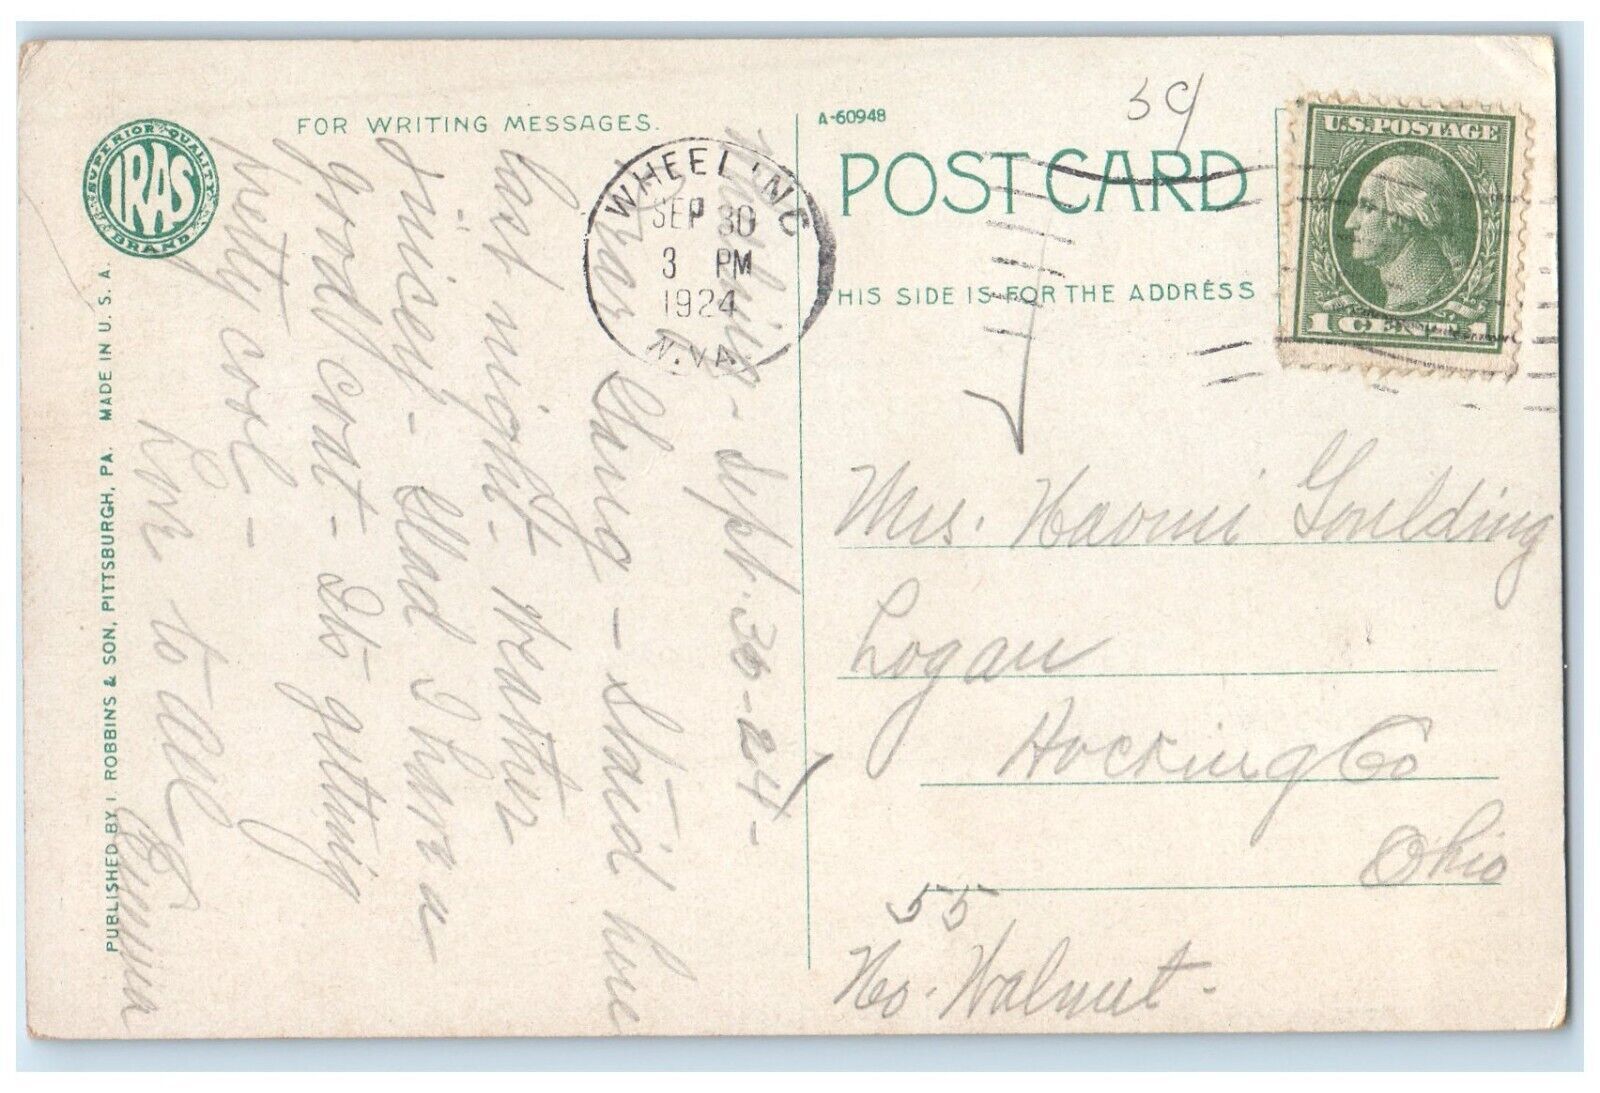 FOR WRITING MESSAGES.
SUPERIOR QUALITY
IRAS
BRAND
PUBLISHED BY I. ROBBINS & SON, PITTSBURGH, PA. MADE IN U. S. A.
Sept. 30-24-
Dear Gang - Staid here
last night. Weather
juicey - Glad I have a
good coat - Its getting
pretty cool -
Love to all
Emma
WHEELING
SEP 30
3 PM
1924
W.VA.
A-60948
POST CARD
THIS SIDE IS FOR THE ADDRESS
U.S. POSTAGE
1 CENT 1
Mrs. Naomi Goulding
Logan
Hocking Co
Ohio
55
No. Walnut.